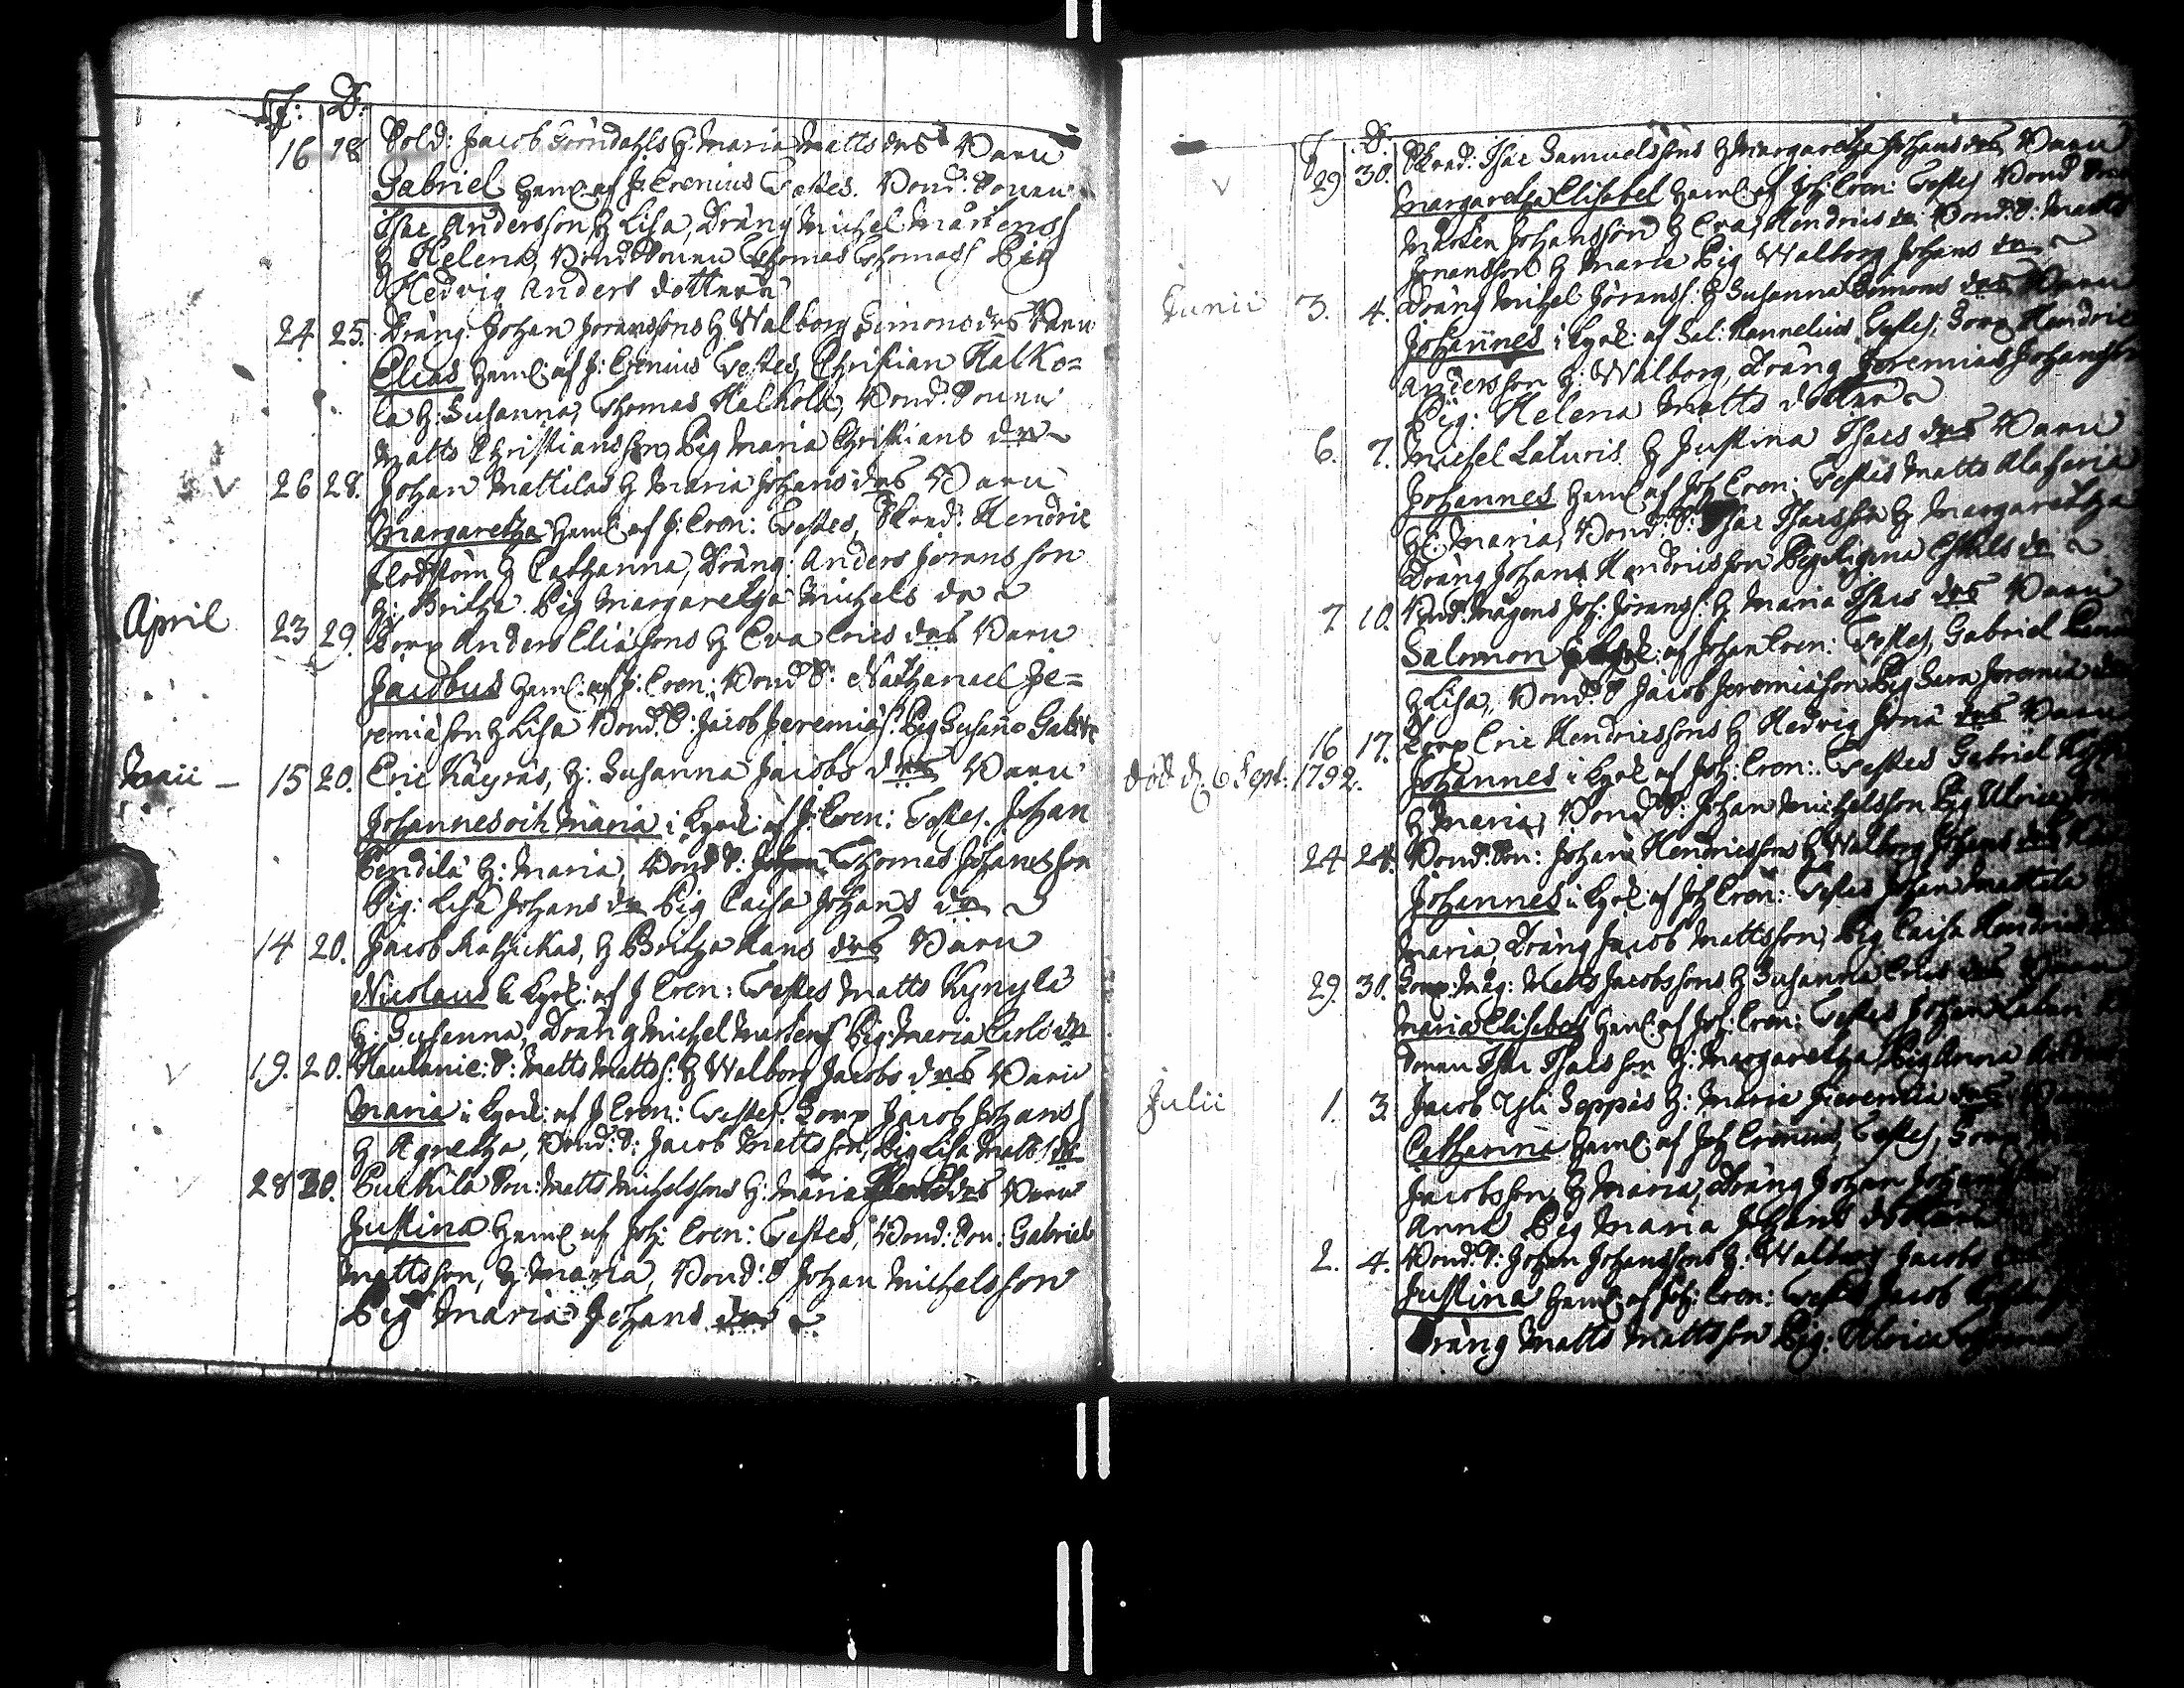 F: D:
16 18 Sold: Jacob Gröndahls H: Maria Matts drs Barn
Gabriel heml: af J: Cronius Testes. Bond: Sonen
Isac Andersson H Lisa, Dräng Michel Mårtenss
H Helena, Bond: Sonen Thomas Thomass Pig
Hedvig Anders dotter
24 25. Dräng Johan Joranssons H. Walborg Simons drs Barn
Elias heml: af J: Cronius Testes, Christian Kalko=
la H: Susanna, Thomas Kalkola, Bond. Sonen
Matts Christiansson, Pig Maria Christians dr
26 28. Johan Mattilas H Maria Johans drs Barn
Margaretha heml: af J: Cron: Testes, Hendric
Flodström H Catharina, Dräng: Anders Joransson
H: Britha Pig Margaretha Michels dr
April 23 29. Torp Anders Eliæsons H Eva Erics drs Barn
Jacobus heml: af J: Cron: Bond S: Nathanael Je=
remiæson H Lisa Bond. S: Jacob Jeremiæs: Pig Susanna Gabr
Maii 15 20. Eric Käyräs, H: Susanna Jacobs drs Barn
Johannes och Maria i Kyrk: af J: Cron: Testes. Johan
Pendilä H: Maria, Bond S: Thomas Johansson
Pig: Lisa Johans dr Pig Caisa Johans dr
14 20. Jacob H Britha Hans drs Barn
Nicolaus i Kyrk: af J Cron: Testes Matts Kynylä
H: Susanna, Dräng Michel Martens Pig: Maria Carls dr
19. 20. S: Matts Matts: H Walborg Jacobs drs Barn
Maria i Kyrk: af J Cron: Testes. Torp Jacob Johans
H Agnetha, Bond: S: Jacob Mattsson, Pig Lisa Matts dr
28 30. Son: Matts Michelssons H: Maria drs Barn
Justina heml af Joh: Cron: Testes, Bond: Son: Gabriel
Mattsson, H: Maria, Bond: S Johan Michelsson
Pig Maria Johans dr
F D:
29 30. Isac Samuelssons H Margaretha Johans drs Barn
Margaretha Elisabet heml: af Joh: Cron: Testes Bond
Mårten Johansson H Eva Hendrics dr Bond: S: Matts
Joransson H Maria Pig Walborg Johans dr
Junii 3. 4. Dräng Michel Jöranss: H Susanna Simons drs Barn
Johannes i Kyrk: af Sal: Testes: Torp Hendric
Andersson H: Walborg, Dräng Jeremias Johansson
Pig: Helena Matts dotter
6. 7. Michel Laturis H Justina Isacs drs Barn
Johannes heml af Joh Cron: Testes Matts
H: Maria, Bond: S: Isac Isacsson H Margaretha
Dräng Johan Hendricsson Pig Regina dr
7. 10. Bond: Mågens Joh: Jöranss: H Maria Isacs drs Barn
Salomon af Johan Cron: Testes, Gabriel
H Lisa, Bond: S Jacob Jeremiæson Pig Sara Jeremiæ
16 17. Torp Eric Hendricssons H Hedvig Jonæ drs Barn
död d: 6 Sept: 1792. Johannes i Kyrk af Joh: Cron: Testes Gabriel
H Maria, Bond S: Johan Michelsson Pig Ulrica
24 24. Bond: Son: Johan Hendricssons H Walborg Johans drs
Johannes i Kyrk: af Joh Cron: Testes Johan Mattila
Maria, Dräng Jacob Mattsson, Pig Caisa Hendrics
29. 30. Torp: Måg: Matts Jacobssons H Susanna Erics drs Barn
Maria Elisabeth heml: af Joh: Cron: Testes Johan
Sonen Isac Isacsson H: Margaretha Pig Anna
Julii 1. 3. Jacob Yli Seppäs H: Maria Jeremiæ drs
Catharina heml: af Joh Cronius, Testes, Torp
Jacobsson H Maria, Dräng Johan Johansson
Anna Pig Maria Johans dotter
2. 4. Bond: S: Johan Johanssons H: Walborg Jacobs
Justina heml af Joh: Cron: Testes Jacob
Dräng Matts Mattsson Pig: Ulrica